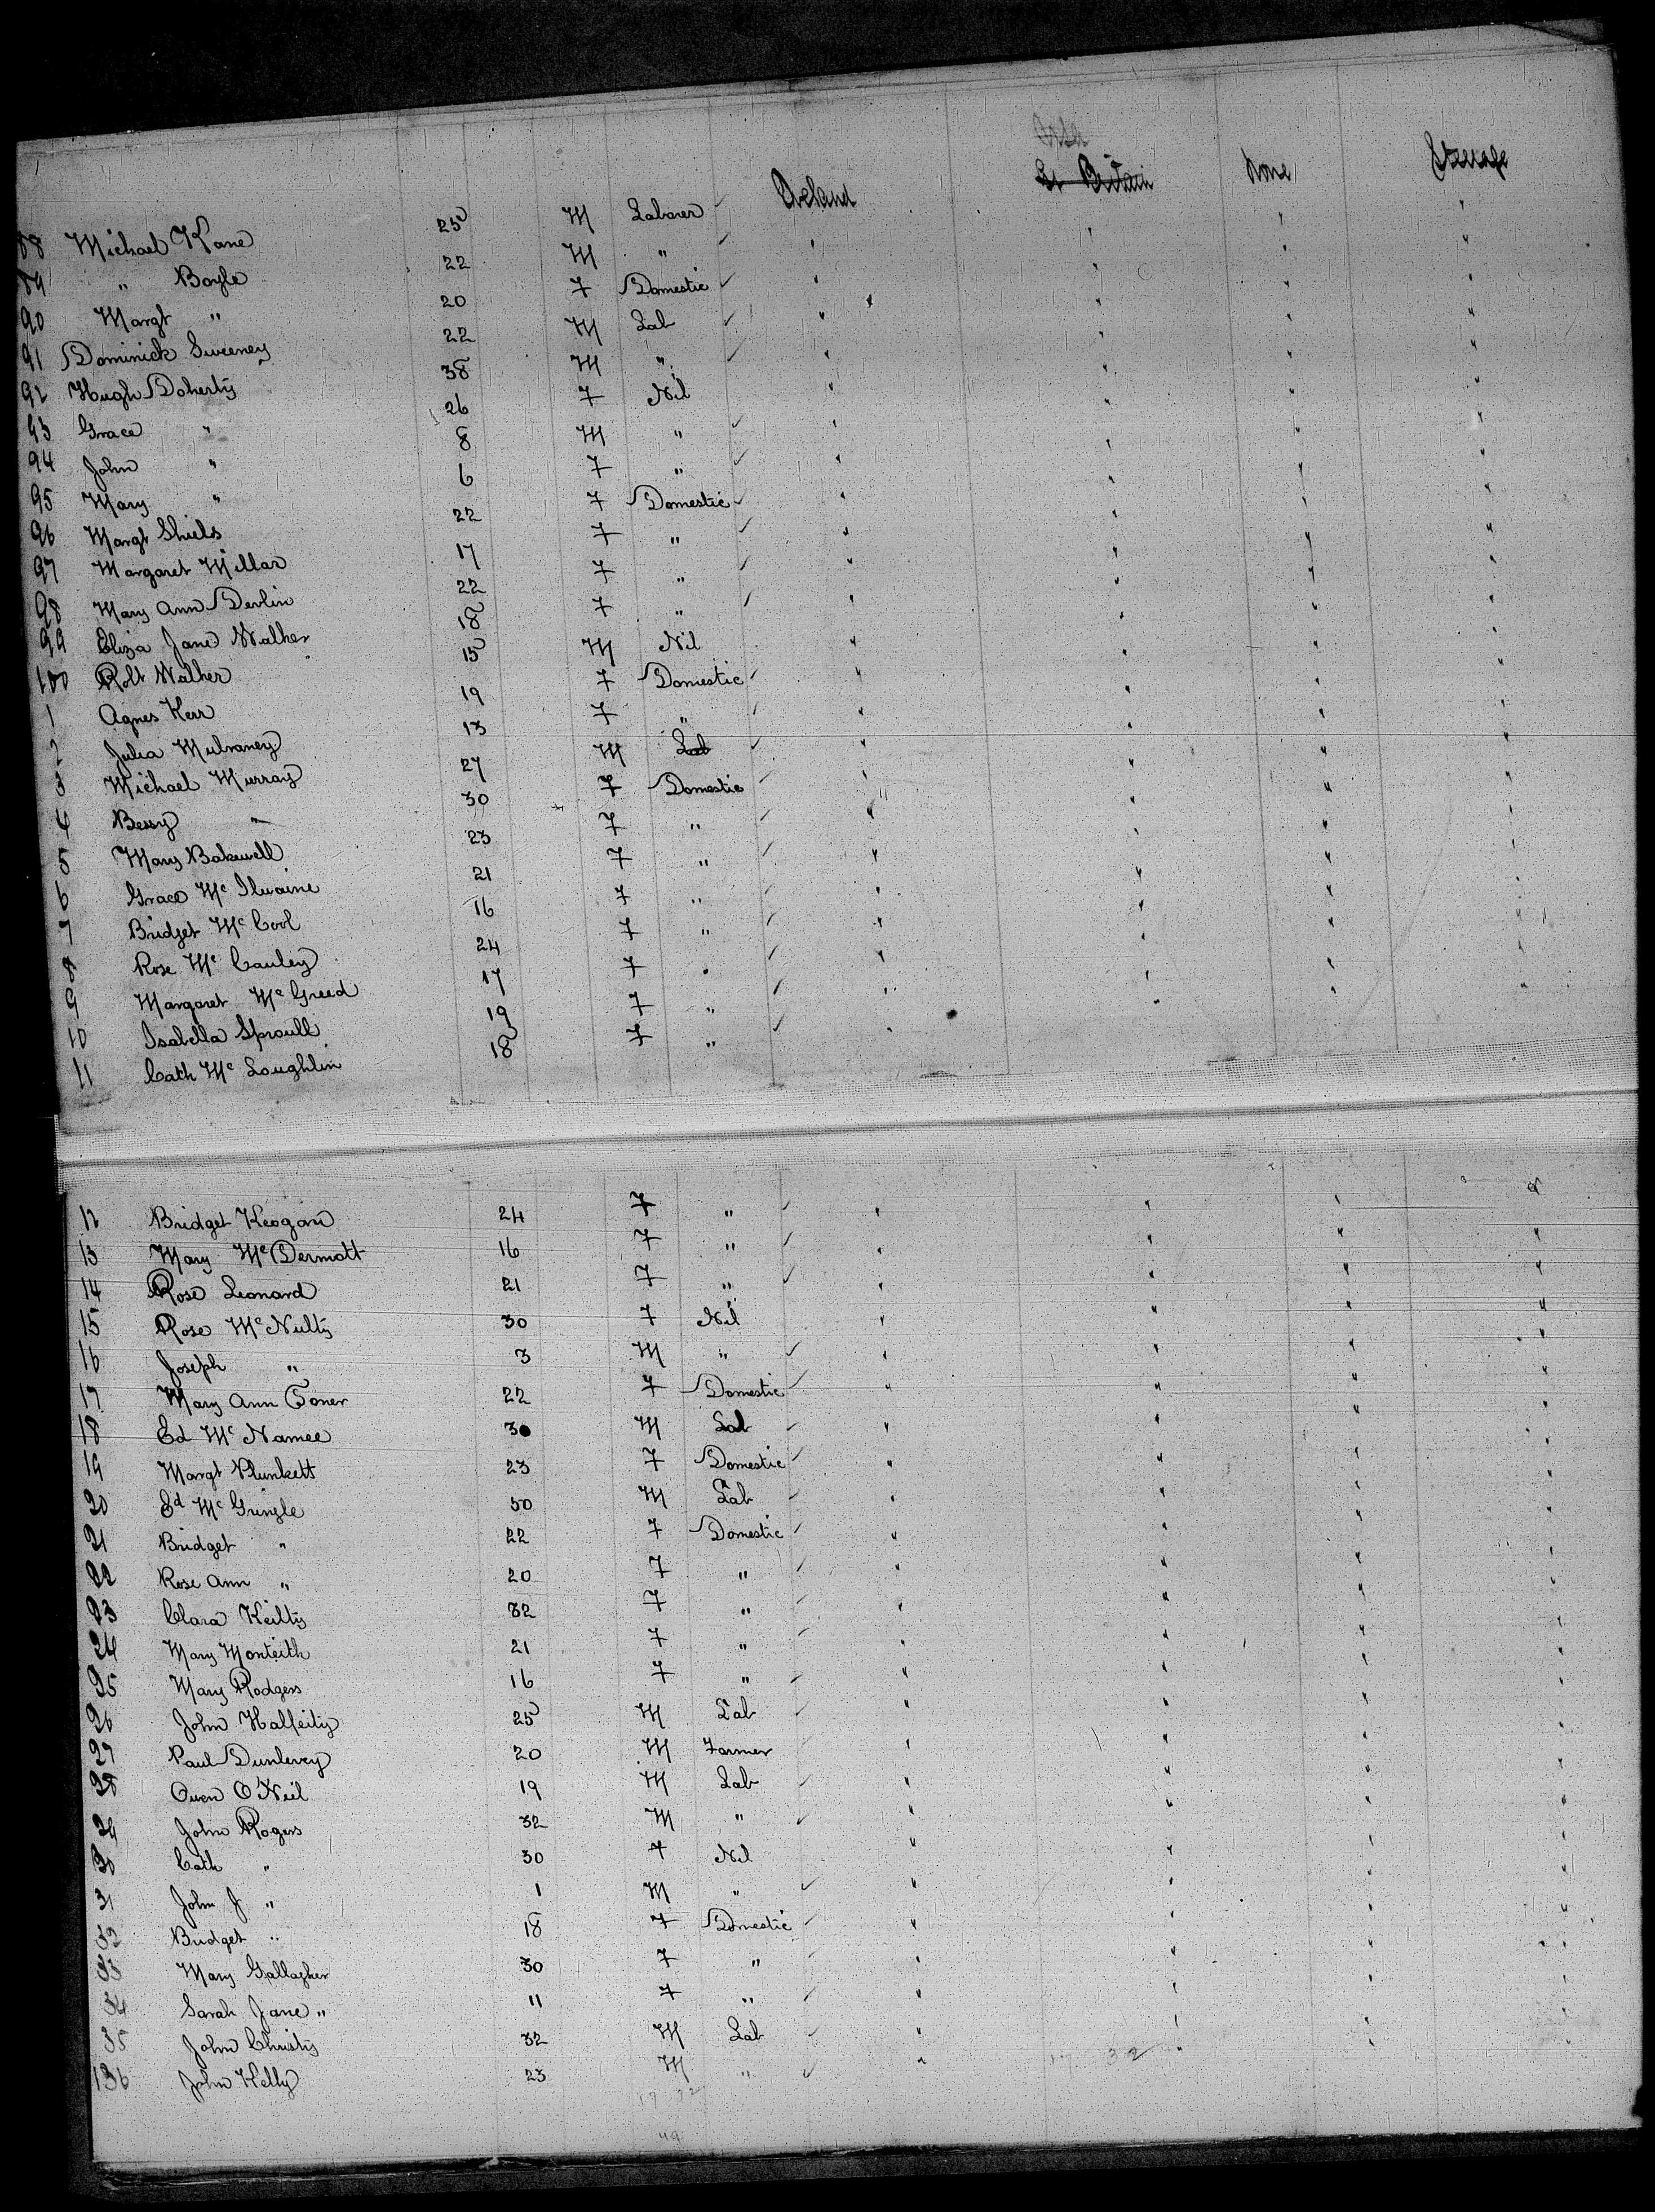 U S A
88 Michael Kane 25 M Laborer Ireland Gt Britain None Steerage
89 " Boyle 22 M " " " " "
90 Margt " 20 F Domestic " " " "
91 Dominick Sweeney 22 M Lab " " " "
92 Hugh Doherty 38 M " " " " "
93 Grace " 26 F Nil " " " "
94 John " 8 M " " " " "
95 Mary " 6 F " " " " "
96 Margt Shiels 22 F Domestic " " " "
97 Margaret Millar 17 F " " " " "
98 Mary Ann Devlin 22 F " " " " "
99 Eliza Jane Walker 18 F " " " " "
100 Robt Walker 15 M Nil " " " "
1 Agnes Kerr 19 F Domestic " " " "
2 Julia Mulvaney 13 F " " " " "
3 Michael Murray 27 M Lab " " " "
4 Bessy " 30 F Domestic " " " "
5 Mary Bakewell 23 F " " " " "
6 Grace McIlwaine 21 F " " " " "
7 Bridget McCool 16 F " " " " "
8 Rose McCauley 24 F " " " " "
9 Margaret McGreed 17 F " " " " "
10 Isabella Sproull 19 F " " " " "
11 Cath McLoughlin 18 F " " " " "
12 Bridget Keogan 24 F " " " " "
13 Mary McDermott 16 F " " " " "
14 Rose Leonard 21 F " " " " "
15 Rose McNulty 30 F Nil " " " "
16 Joseph " 3 M " " " " "
17 Mary Ann Toner 22 F Domestic " " " "
18 Ed McNamee 30 M Lab " " " "
19 Margt Plunkett 23 F Domestic " " " "
20 Ed McGuingle 50 M Lab " " " "
21 Bridget " 22 F Domestic " " " "
22 Rose Ann " 20 F " " " " "
23 Clara Keilty 32 F " " " " "
24 Mary Monteith 21 F " " " " "
25 Mary Rodgers 16 F " " " " "
26 John Halfeity 25 M Lab " " " "
27 Paul Dunlevey 20 M Farmer " " " "
28 Owen O'Neil 19 M Lab " " " "
29 John Rogers 32 M " " " " "
30 Cath " 30 F Nil " " " "
31 John J " 1 M " " " " "
32 Bridget " 18 F Domestic " " " "
33 Mary Gallagher 30 F " " " " "
34 Sarah Jane " 11 F " " " " "
35 John Christy 32 M Lab " " " "
136 John Kelly 23 M " " " " "
17 32
17 32
49